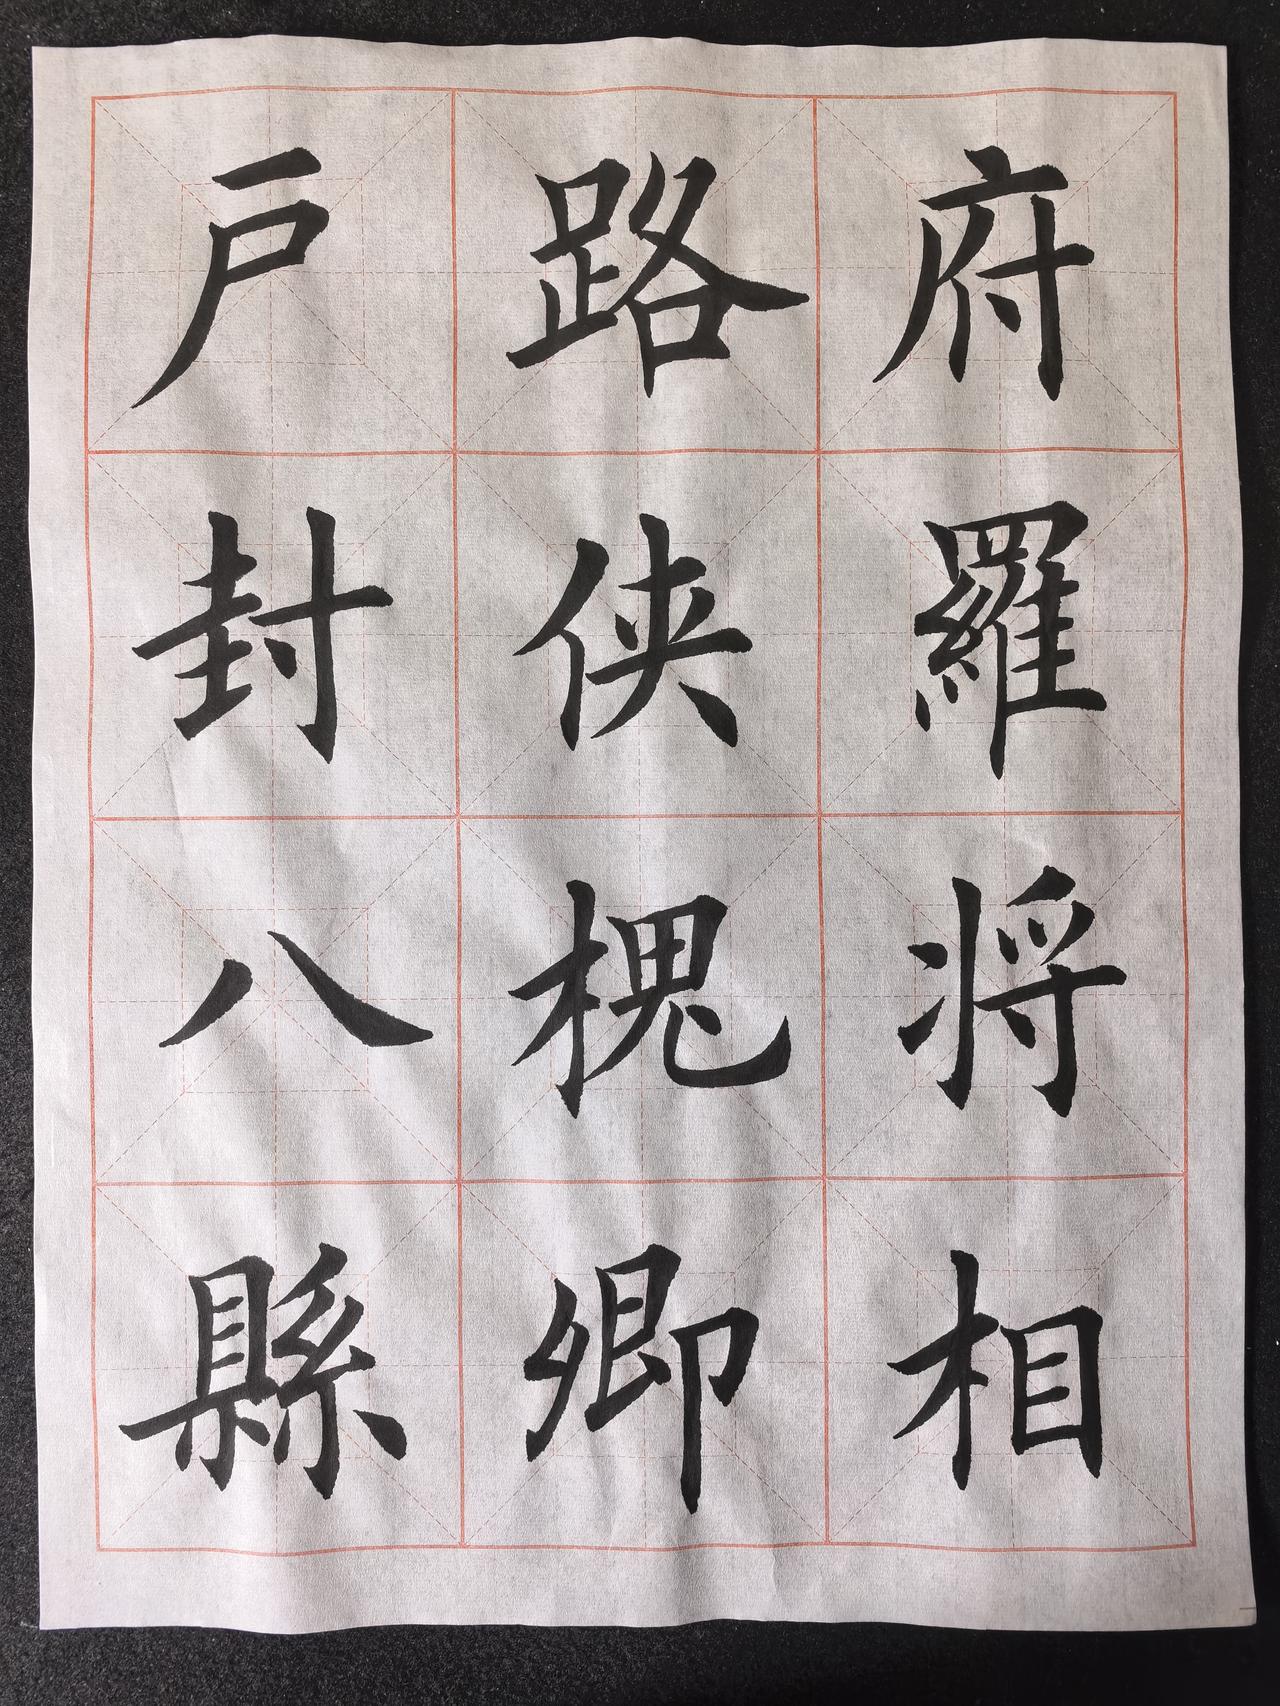 府羅将相
路侠槐卿
戸封八縣